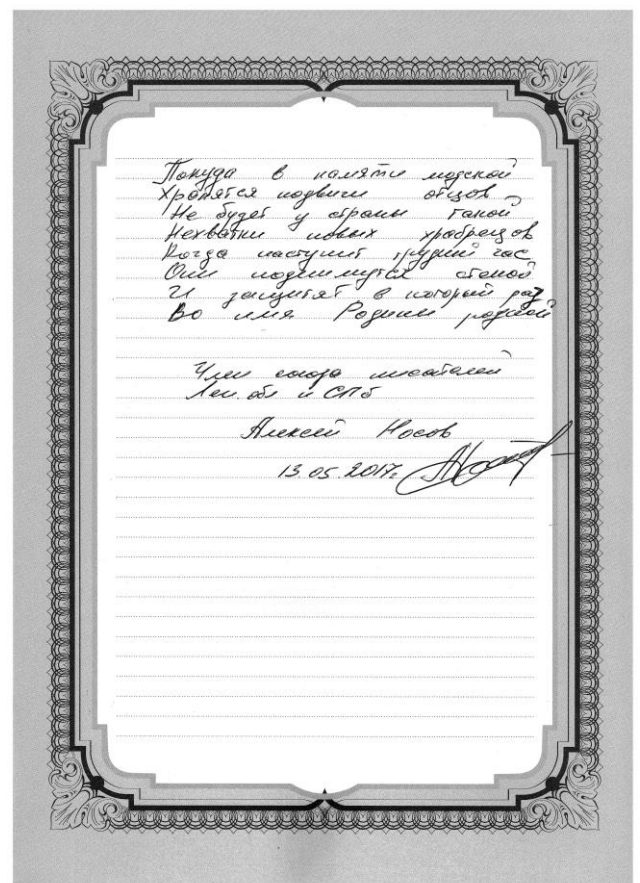 Покуда в памяти людской
Хранятся подвиги отцов
Не будет у страны такой
Нехватки новых храбрецов
Когда наступит трудный час
Они поднимутся стеной
И защитят в который раз
Во имя Родины родной
Член союза писателей
Лен. обл и СПб
Алексей Носов
13.05.2017г.